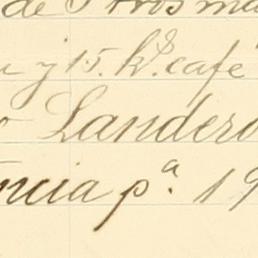 de
y 15. k.s café
Landero
ncia p.a 19